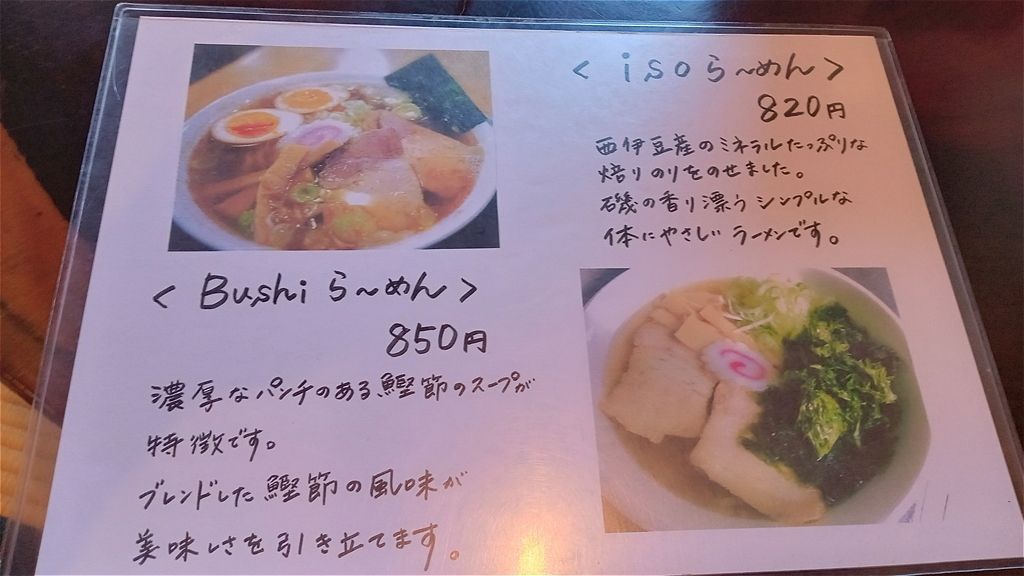 < Bushi ら～めん >
850円
濃厚なパンチのある鰹節のスープが
特徴です。
ブレンドした鰹節の風味が
美味しさを引き立てます。
< isoら～めん >
820円
西伊豆産のミネラルたっぷりな
焙りのりをのせました。
磯の香り漂うシンプルな
体にやさしいラーメンです。